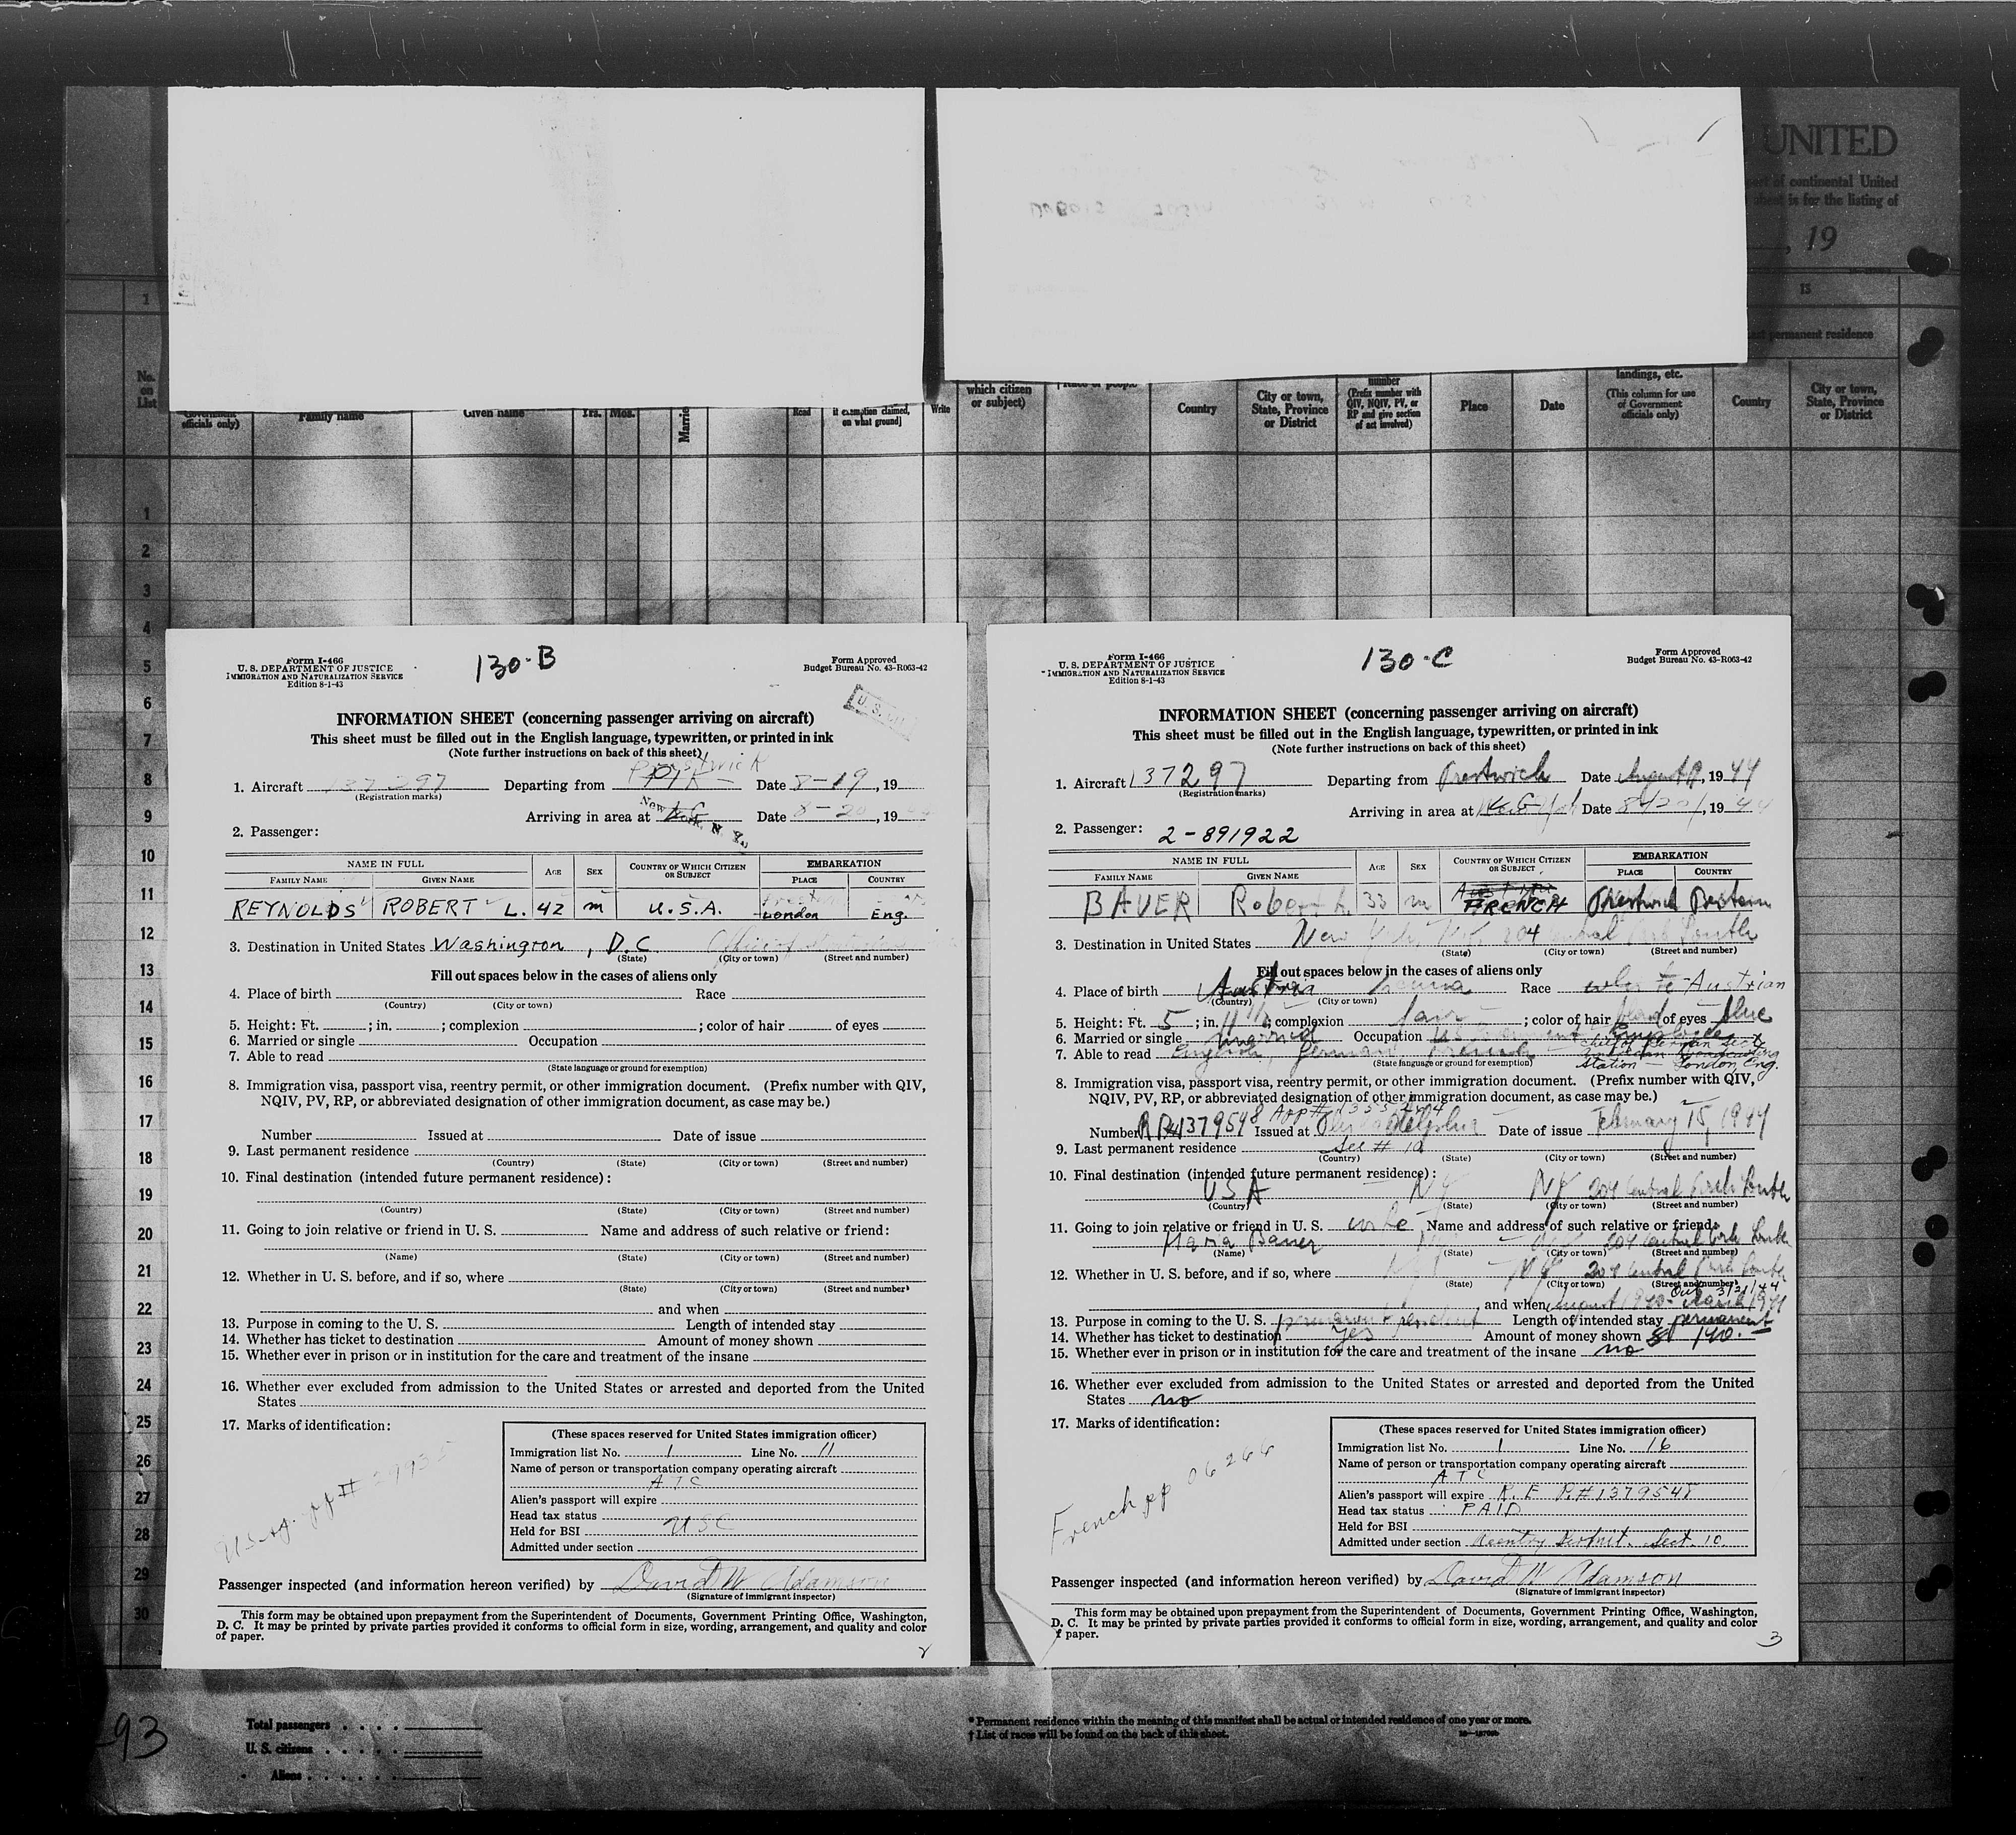 UNITED
part of continental United
sheet is for the listing of
, 19
1
15
permanent residence
No. on List
Government officials only)
Family name
Given name
Yrs. Mos.
Married
Read
if exemption claimed, on what ground]
Write
which citizen or subject)
Country
City or town, State, Province or District
number (Prefix number with QIV, NQIV, PV, or RP and give section of act involved)
Place
Date
landings, etc. (This column for use of Government officials only)
Country
City or town, State, Province or District
1
2
3
4
5
6
7
8
9
10
11
12
13
14
15
16
17
18
19
20
21
22
23
24
25
26
27
28
29
30
Form I-466
U. S. DEPARTMENT OF JUSTICE
IMMIGRATION AND NATURALIZATION SERVICE
Edition 8-1-43
130-B
Form Approved
Budget Bureau No. 43-R063-42
INFORMATION SHEET (concerning passenger arriving on aircraft)
This sheet must be filled out in the English language, typewritten, or printed in ink
(Note further instructions on back of this sheet)
Prestwick
1. Aircraft 137297 Departing from PIK Date 8-19, 19
(Registration marks)
Arriving in area at New York, N. Y. Date 8-20, 19
2. Passenger:
NAME IN FULL AGE SEX COUNTRY OF WHICH CITIZEN OR SUBJECT EMBARKATION
FAMILY NAME GIVEN NAME PLACE COUNTRY
REYNOLDS ROBERT L. 42 M U.S.A. London Eng.
3. Destination in United States Washington, D.C
(State) (City or town) (Street and number)
Fill out spaces below in the cases of aliens only
4. Place of birth Race
(Country) (City or town)
5. Height: Ft. ; in. ; complexion ; color of hair of eyes
6. Married or single Occupation
7. Able to read
(State language or ground for exemption)
8. Immigration visa, passport visa, reentry permit, or other immigration document. (Prefix number with QIV,
NQIV, PV, RP, or abbreviated designation of other immigration document, as case may be.)
Number Issued at Date of issue
9. Last permanent residence
(Country) (State) (City or town) (Street and number)
10. Final destination (intended future permanent residence):
(Country) (State) (City or town) (Street and number)
11. Going to join relative or friend in U. S. Name and address of such relative or friend:
(Name) (State) (City or town) (Street and number)
12. Whether in U. S. before, and if so, where
(State) (City or town) (Street and number)
and when
13. Purpose in coming to the U. S. Length of intended stay
14. Whether has ticket to destination Amount of money shown
15. Whether ever in prison or in institution for the care and treatment of the insane
16. Whether ever excluded from admission to the United States or arrested and deported from the United
States
17. Marks of identification:
(These spaces reserved for United States immigration officer)
Immigration list No. 1 Line No. 11
Name of person or transportation company operating aircraft
ATC
Alien's passport will expire
Head tax status
Held for BSI USC
Admitted under section
Passenger inspected (and information hereon verified) by David W Adamson
(Signature of immigrant inspector)
This form may be obtained upon prepayment from the Superintendent of Documents, Government Printing Office, Washington,
D. C. It may be printed by private parties provided it conforms to official form in size, wording, arrangement, and quality and color
of paper.
Form I-466
U. S. DEPARTMENT OF JUSTICE
IMMIGRATION AND NATURALIZATION SERVICE
Edition 8-1-43
130-C
Form Approved
Budget Bureau No. 43-R063-42
INFORMATION SHEET (concerning passenger arriving on aircraft)
This sheet must be filled out in the English language, typewritten, or printed in ink
(Note further instructions on back of this sheet)
1. Aircraft 137297 Departing from Prestwich Date August, 1944
(Registration marks)
Arriving in area at Date 8/20/, 1944
2. Passenger: 2-891922
NAME IN FULL AGE SEX COUNTRY OF WHICH CITIZEN OR SUBJECT EMBARKATION
FAMILY NAME GIVEN NAME PLACE COUNTRY
BAUER Robert 33 m FRENCH Prestwich Britain
3. Destination in United States New York, N.Y. 204 Central Park South
(State) (City or town) (Street and number)
Fill out spaces below in the cases of aliens only
4. Place of birth Austria Vienna Race white-Austrian
(Country) (City or town)
5. Height: Ft. 5; in. 11; complexion fair; color of hair of eyes blue
6. Married or single married Occupation US Government Employee
7. Able to read English German French
(State language or ground for exemption)
station - London Eng.
8. Immigration visa, passport visa, reentry permit, or other immigration document. (Prefix number with QIV,
NQIV, PV, RP, or abbreviated designation of other immigration document, as case may be.)
Number RP#1379548 Issued at Philadelphia Date of issue February 15, 1944
9. Last permanent residence Sec # 10
(Country) (State) (City or town) (Street and number)
10. Final destination (intended future permanent residence):
USA NY NY 204 Central Park South
(Country) (State) (City or town) (Street and number)
11. Going to join relative or friend in U. S. wife Name and address of such relative or friend:
Maria Bauer NY 204 Central Park South
(Name) (State) (City or town) (Street and number)
12. Whether in U. S. before, and if so, where NY NY 204 Central Park South
(State) (City or town) (Street and number)
and when August 1940- March 1944
13. Purpose in coming to the U. S. permanent resident Length of intended stay permanent
14. Whether has ticket to destination yes Amount of money shown $ 140.-
15. Whether ever in prison or in institution for the care and treatment of the insane no
16. Whether ever excluded from admission to the United States or arrested and deported from the United
States no
17. Marks of identification:
French pp 06266
(These spaces reserved for United States immigration officer)
Immigration list No. 1 Line No. 16
Name of person or transportation company operating aircraft
ATC
Alien's passport will expire R.E P.#1379548
Head tax status PAID
Held for BSI
Admitted under section Reentry Permit. Sect. 10
Passenger inspected (and information hereon verified) by David W Adamson
(Signature of immigrant inspector)
This form may be obtained upon prepayment from the Superintendent of Documents, Government Printing Office, Washington,
D. C. It may be printed by private parties provided it conforms to official form in size, wording, arrangement, and quality and color
of paper.
3
93
Total passengers . . . .
U. S. citizens . . . . .
Aliens . . . . . .
* Permanent residence within the meaning of this manifest shall be actual or intended residence of one year or more.
† List of races will be found on the back of this sheet.